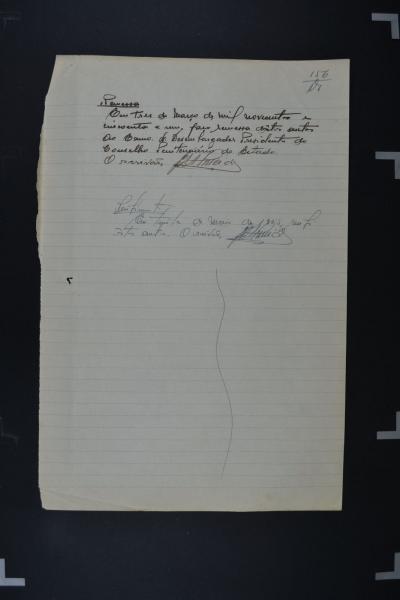 156
Remessa
Em tres de Março de mil novecentos e
cincoenta e um, faço remessa destes autos
ao Exmo. Desembargador Presidente do
Conselho Penitenciario do Estado
O escrivão
Recebimento
Em de Maio de
estes autos. O escrivão,